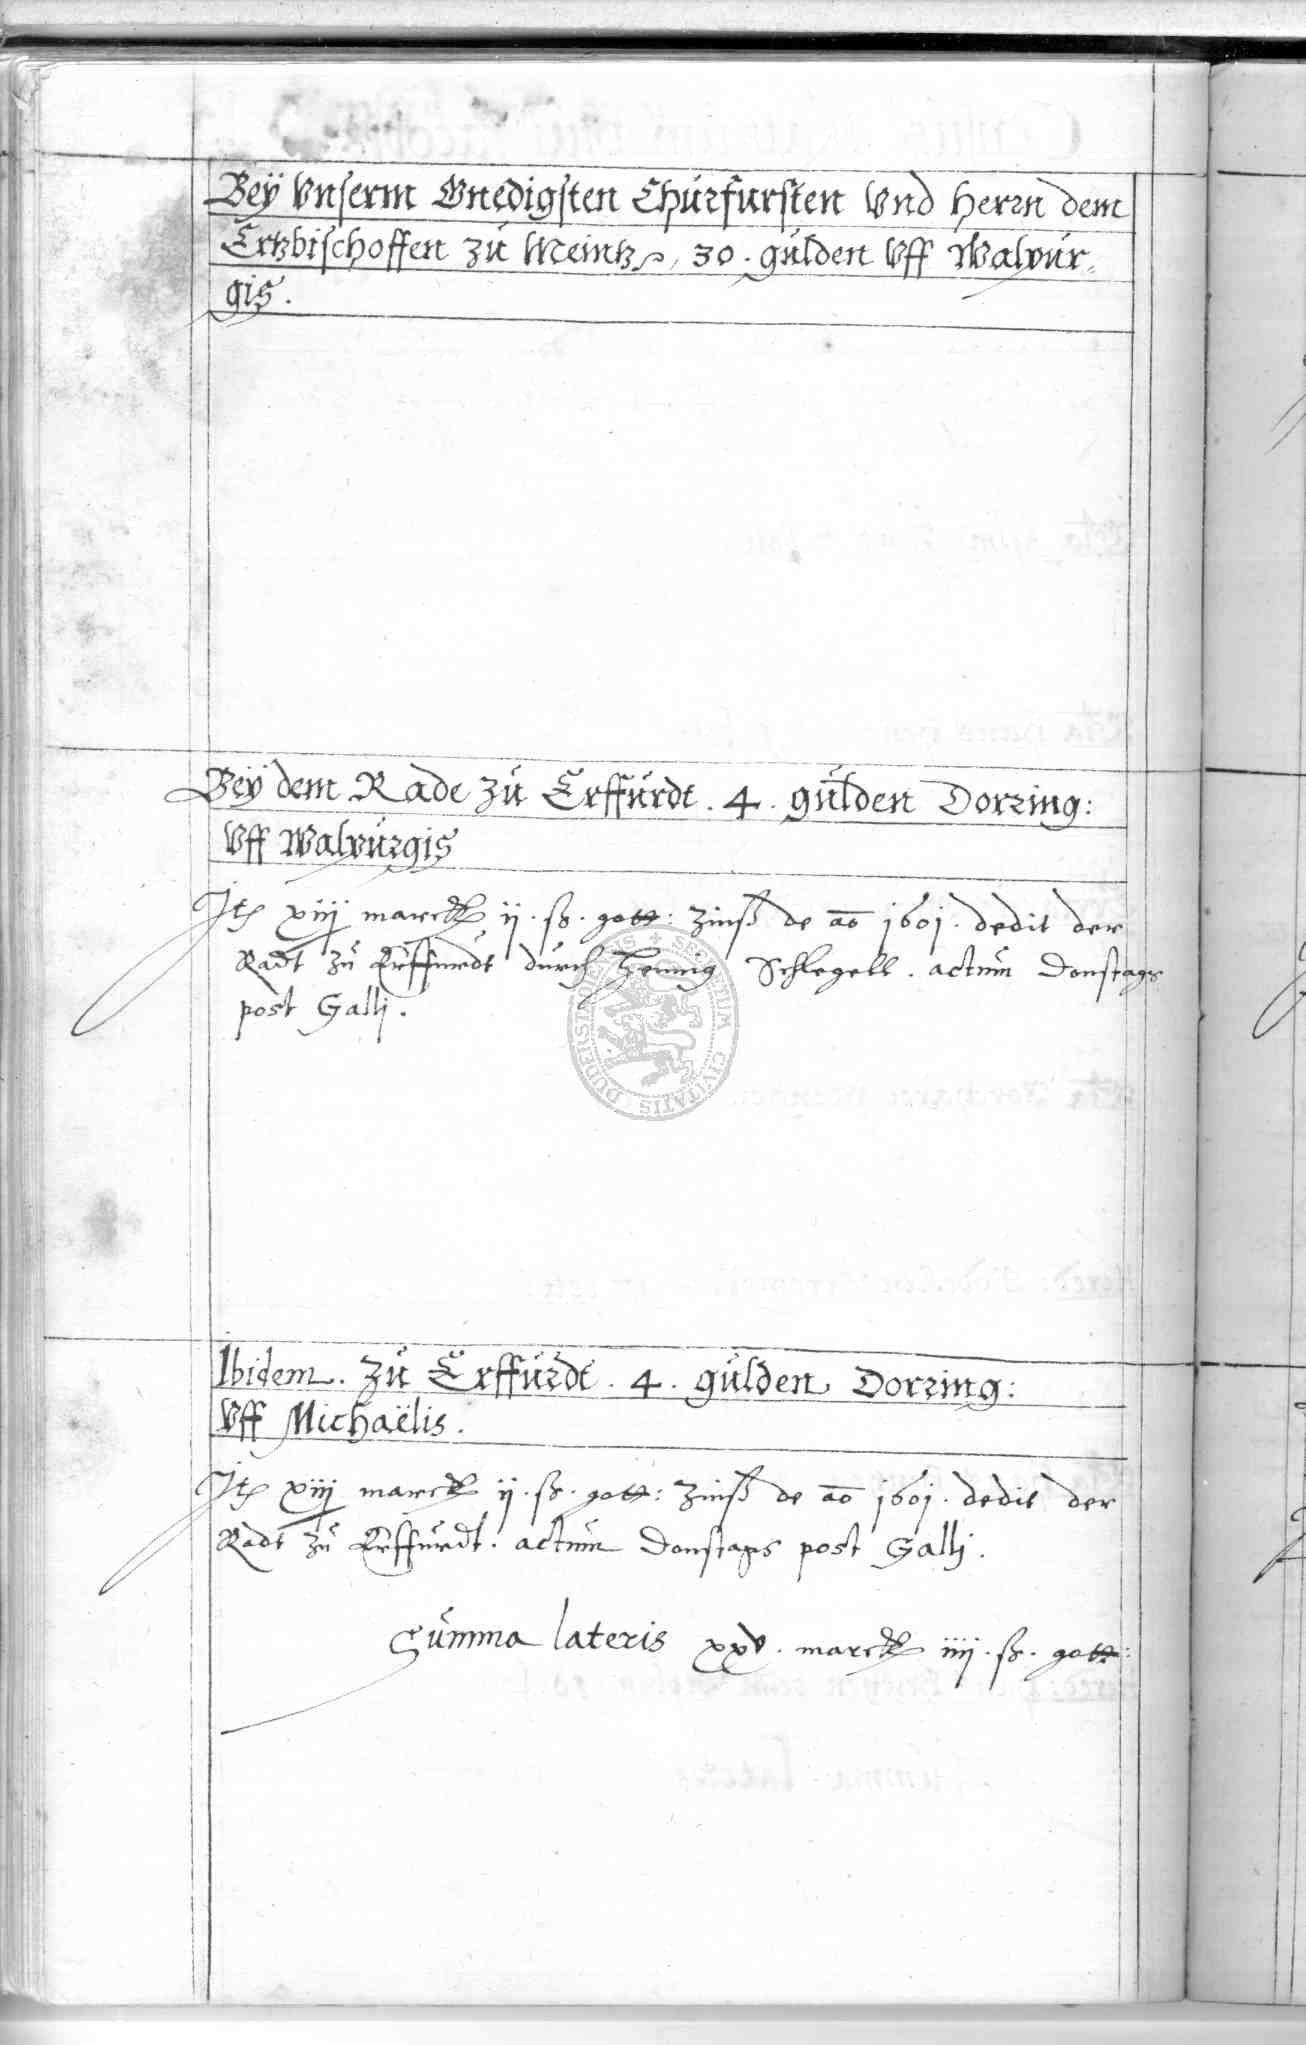 Beÿ Unserm Gnedigsten Churfursten Und Herrn dem
Ertzbischoffen zu Meintz, 30. gulden Uff Walpur=
gis.
Beÿ dem Rade zu Erffurdt. 4. gulden Dorring:
Uff Walpurgis
Itē xiij marck ij. ß. gott: Zinß de ao 1601. dedit der
Radt zu Erffurdt durch Hennig Schlegell. actum Donstags
post Gallj.
SECRETUM CIVITATIS DUDERSTADENSIS
Ibidem. Zu Erffurdt. 4. gulden Dorring:
Uff Michaëlis.
Itē xiij marck ij. ß. gott: Zinß de ao 1601. dedit der
Radt zu Erffurdt. actum Donstags post Gallj.
Summa lateris xxv. marck iiij. ß. gott: